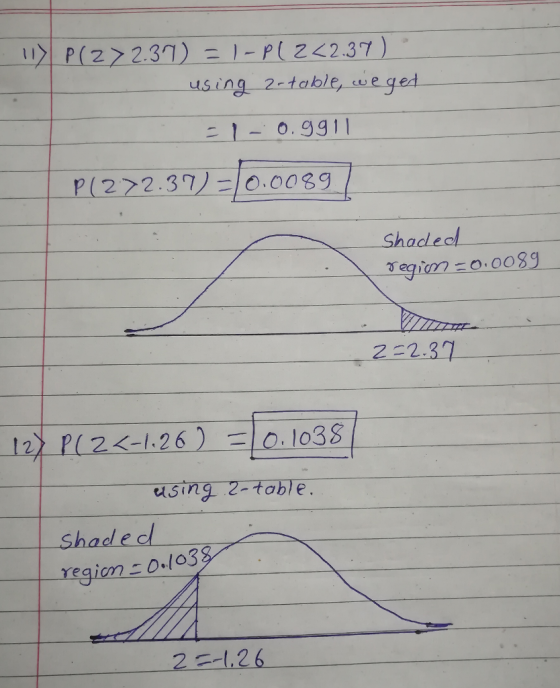 11) P(Z > 2.37) = 1 - P( Z < 2.37 )
using z-table, we get
= 1 - 0.9911
P(Z > 2.37) = 0.0089
Shaded
region = 0.0089
Z = 2.37
12) P(Z < -1.26 ) = 0.1038
using z-table.
Shaded
region = 0.1038
Z = -1.26